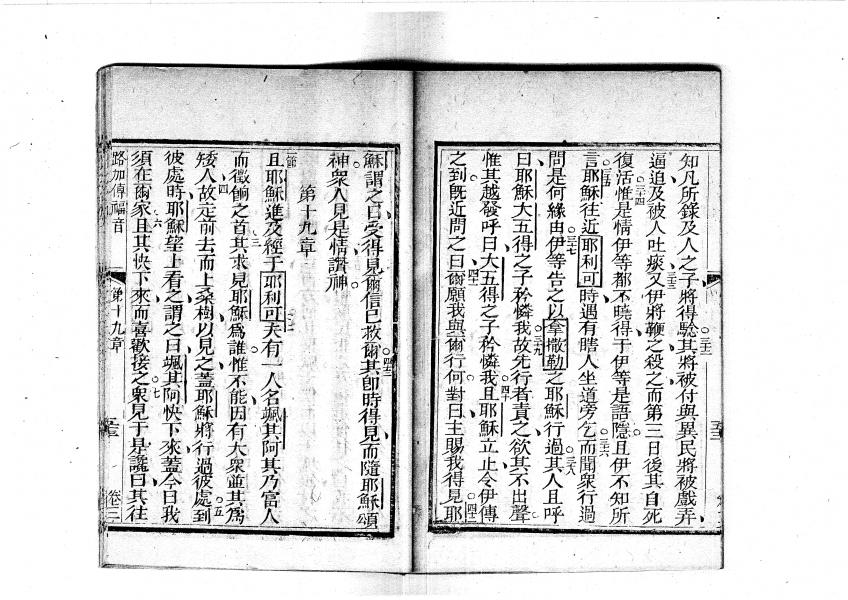 知凡所錄及人之子將得驗三十二其將被付與異民將被戲弄
逼迫及被人吐痰三十三又伊將鞭之殺之而第三日後其自死
復活三十四惟是情伊等都不曉得于伊等是語隱且伊不知所
言三十五耶穌往近耶利可時遇有瞎人坐道旁乞三十六而聞衆行過
問是何緣由三十七伊等告之以拿撒勒之耶穌行過三十八其人且呼
曰耶穌大五得之子矜憐我三十九故先行者責之欲其不出聲
惟其越發呼曰大五得之子矜憐我四十且耶穌立止令伊傳
之到既近問之四十一曰爾願我與爾行何對曰主賜我得見四十二耶
穌謂之曰受得見爾信已救爾四十三其卽時得見而隨耶穌頌
神衆人見是情讚神
第十九章
一節且耶穌進及經于耶利可二夫有一人名颯其阿其乃富人
而徵餉之首三其求見耶穌爲誰惟不能因有大衆並其爲
矮人四故走前去而上桑樹以見之蓋耶穌將行過彼處五到
彼處時耶穌望上看之謂之曰颯其阿快下來蓋今日我
須在爾家六且其快下來而喜歡接之七衆見于是讒曰其往
路加傳福音
第十九章
五十三
卷三